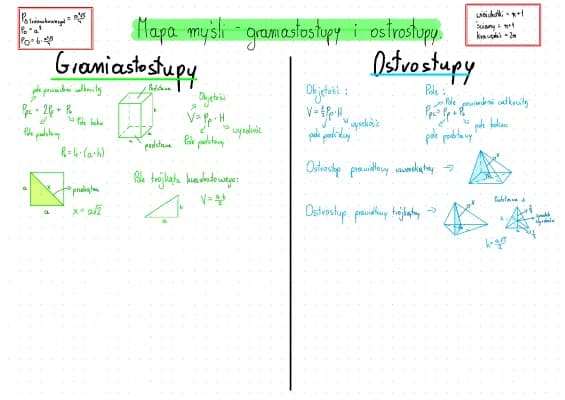 Mapa myśli - graniastostupy i ostrostupy.
P□ = a²
wierzchołki = n+1
ściany = n+1
krawędzie = 2n
Graniastostupy
pole powierzchni całkowitej
Ppc = 2Pp + Pb
Pole podstawy
Pole boku
Pb = 4 · (a·h)
Podstawa
podstawa
Objętość
V = Pp · H
wysokość
Pole podstawy
a
a
przekątna
x = a√2
Pole trójkąta kwadratowego:
Ostrostupy
Objętość :
V = ⅓ Pp · H
wysokość
pole podstawy
Pole :
Pole powierzchni całkowitej
Ppc = Pp + Pb
pole boków
pole podstawy
Ostrostup prawidłowy czworokątny →
Ostrostup prawidłowy trójkątny →
Podstawa